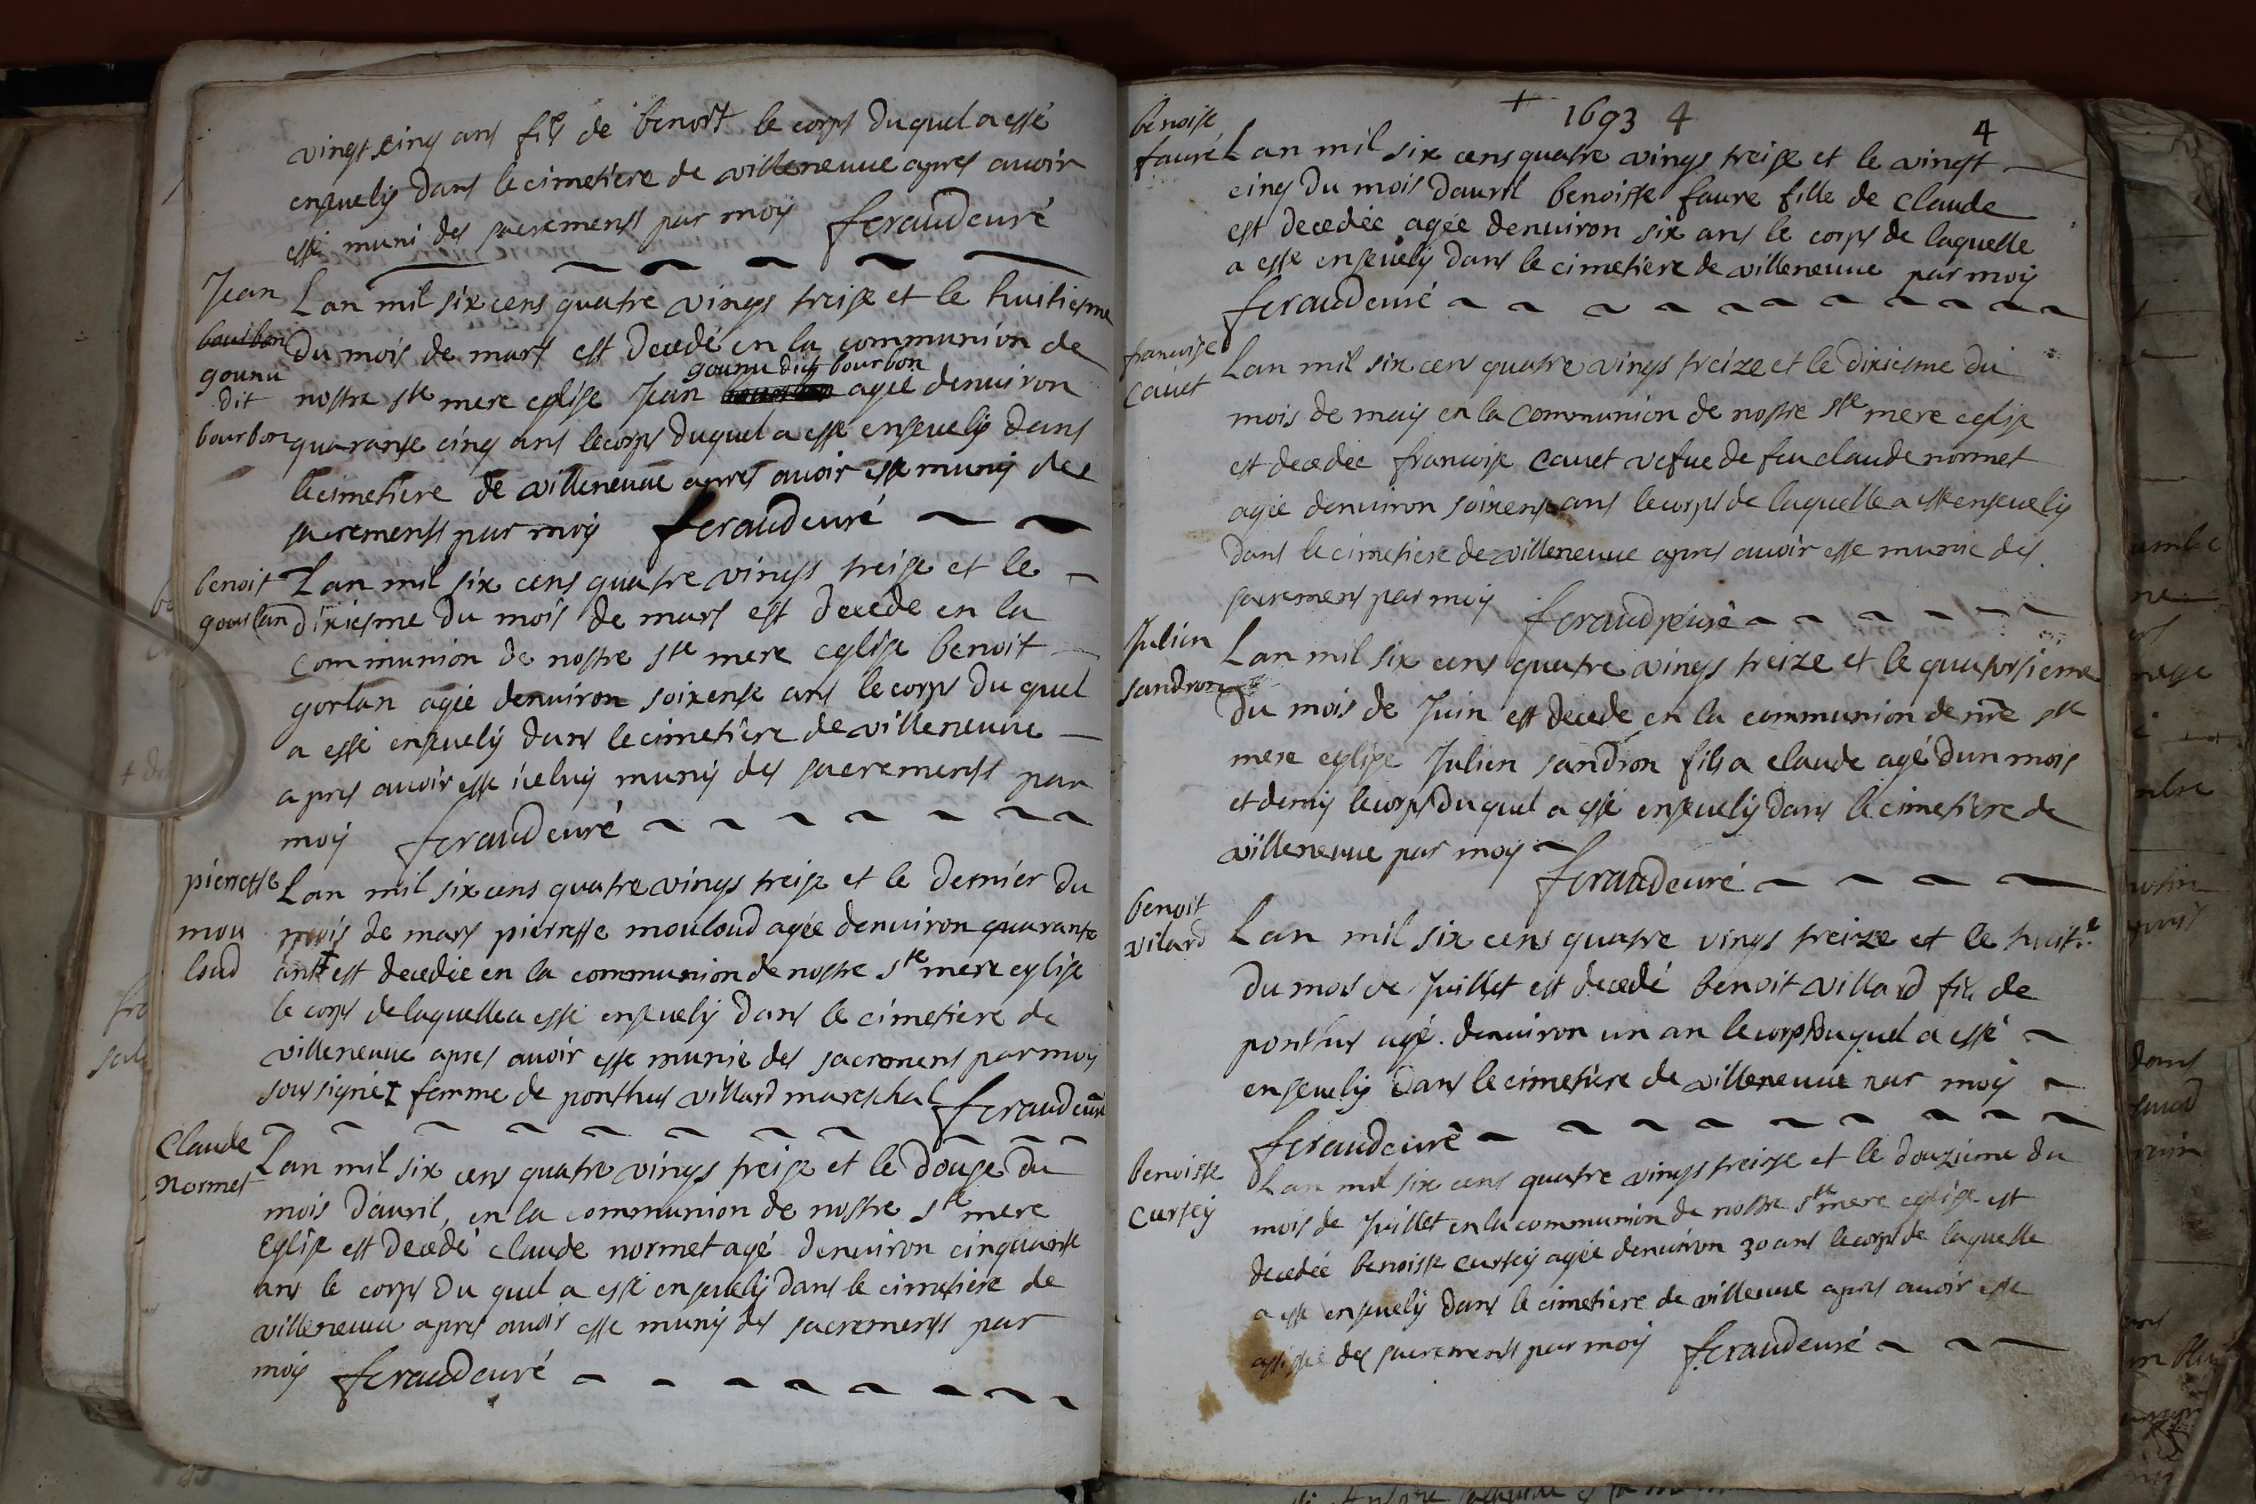 vingt cinq ans fils de benoit le corps duquel a esté
ensevely dans le cimetiere de villeneuve apres avoir
esté muni des sacrements par moy feraud curé
Jean
bourbon
gounu
dit
bourbon
Lan mil six cens quatre vings treise et le huitiesme
du mois de mars est decedé en la communion de
gounu dict bourbon
nostre ste mere eglise Jean agée denviron
quarante cinq ans le corps duquel a esté ensevely dans
le cimetiere de villeneuve apres avoir esté muny des
sacrements par moy feraud curé
benoit
gourlan
Lan mil six cens quatre vings treise et le
dixiesme du mois de mars est decede en la
communion de nostre ste mere eglise benoit
gorlan agée denviron soixente ans le corps du quel
a esté ensevely dans le cimetiere de villeneuve
apres avoir esté iceluy muny des sacrements par
moy feraud curé
pierrette
mou
loud
Lan mil six cens quatre vings treise et le dernier du
mois de mars pierrette mouloud agée denviron quarante
ans est decedée en la communion de nostre ste mere eglise
le corps de laquelle a esté ensevely dans le cimetiere de
villeneuve apres avoir esté munie des sacremens par moy
soussigné femme de ponthus villard mareschal feraud curé
Claude
normet
Lan mil six cens quatre vings treise et le douse du
mois d'avril, en la communion de nostre ste mere
Eglise est decedé claude normet agé denviron cinquante
ans le corps du quel a esté ensevely dans le cimetiere de
villeneuve apres avoir esté muny des sacrements par
moy feraud curé
+ 1693 4
4
benoise
faure
Lan mil six cens quatre vings treise et le vingt
cinq du mois davril benoiste faure fille de Claude
est decedée agée denviron six ans le corps de laquelle
a esté ensevely dans le cimetiere de villeneuve par moy
feraud curé
francoise
cavet
Lan mil six cens quatre vings treize et le dixiesme du
mois de may en la Communion de nostre ste mere eglise
est decedée francoise cavet vefue de feu claude normet
agée denviron soixente ans le corps de laquelle a esté ensevely
dans le cimetiere de villeneuve apres avoir esté munie des
sacremens par moy feraud curé
Julien
sandron
Lan mil six cens quatre vings treize et le quatorsieme
du mois de Juin est decede en la communion de nre ste
mere eglise Julien sandron fils a claude agé dun mois
et demy le corps duquel a esté ensevely dans le cimetiere de
villeneuve par moy
feraud curé
benoit
vilard
Lan mil six cens quatre vings treize et le huite
du mois de Juillet est decedé benoit villard fils de
ponthus agé denviron un an le corps duquel a esté
ensevely dans le cimetiere de villeneuve par moy
feraud curé
benoiste
cursey
Lan mil six cens quatre vings treize et le douzieme du
mois de Juillet en la communion de nostre ste mere eglise est
decedée benoiste cursey agée denviron 30 ans le corps de laquelle
a esté ensevely dans le cimetiere de villeuve apres avoir esté
assistée des sacrements par moy feraud curé